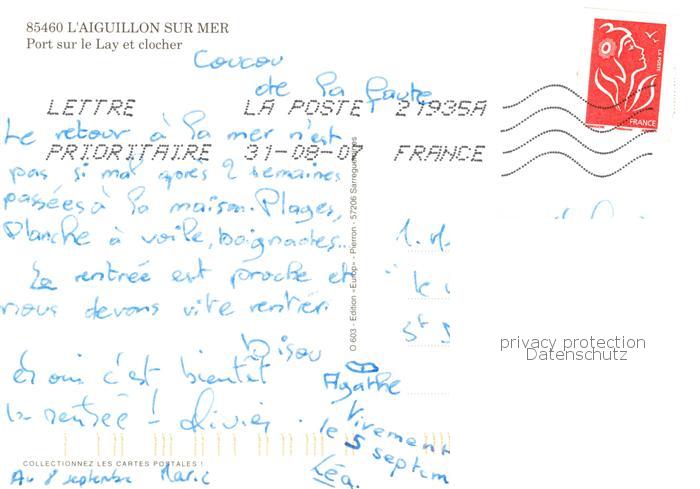 85460 L'AIGUILLON SUR MER
Port sur le Lay et clocher
Coucou
de la faute
LETTRE LA POSTE 21935A
PRIORITAIRE 31-08-0 FRANCE
LA POSTE
FRANCE
Le retour à la mer n'est
pas si mal après 2 semaines
passées à la maison. Plages,
Planche à voile, baignades...
La rentrée est proche et
nous devons vite rentrer.
Bisou
Agathe
Et oui c'est bientôt
la rentrée ! Olivier
Vivement
le 5 septem
Léa.
Au 8 septembre Marie
1. M.
le
St
O 603 - Edition «Europ» - Pierron - 57206 Sarreguemines
COLLECTIONNEZ LES CARTES POSTALES !
privacy protection
Datenschutz